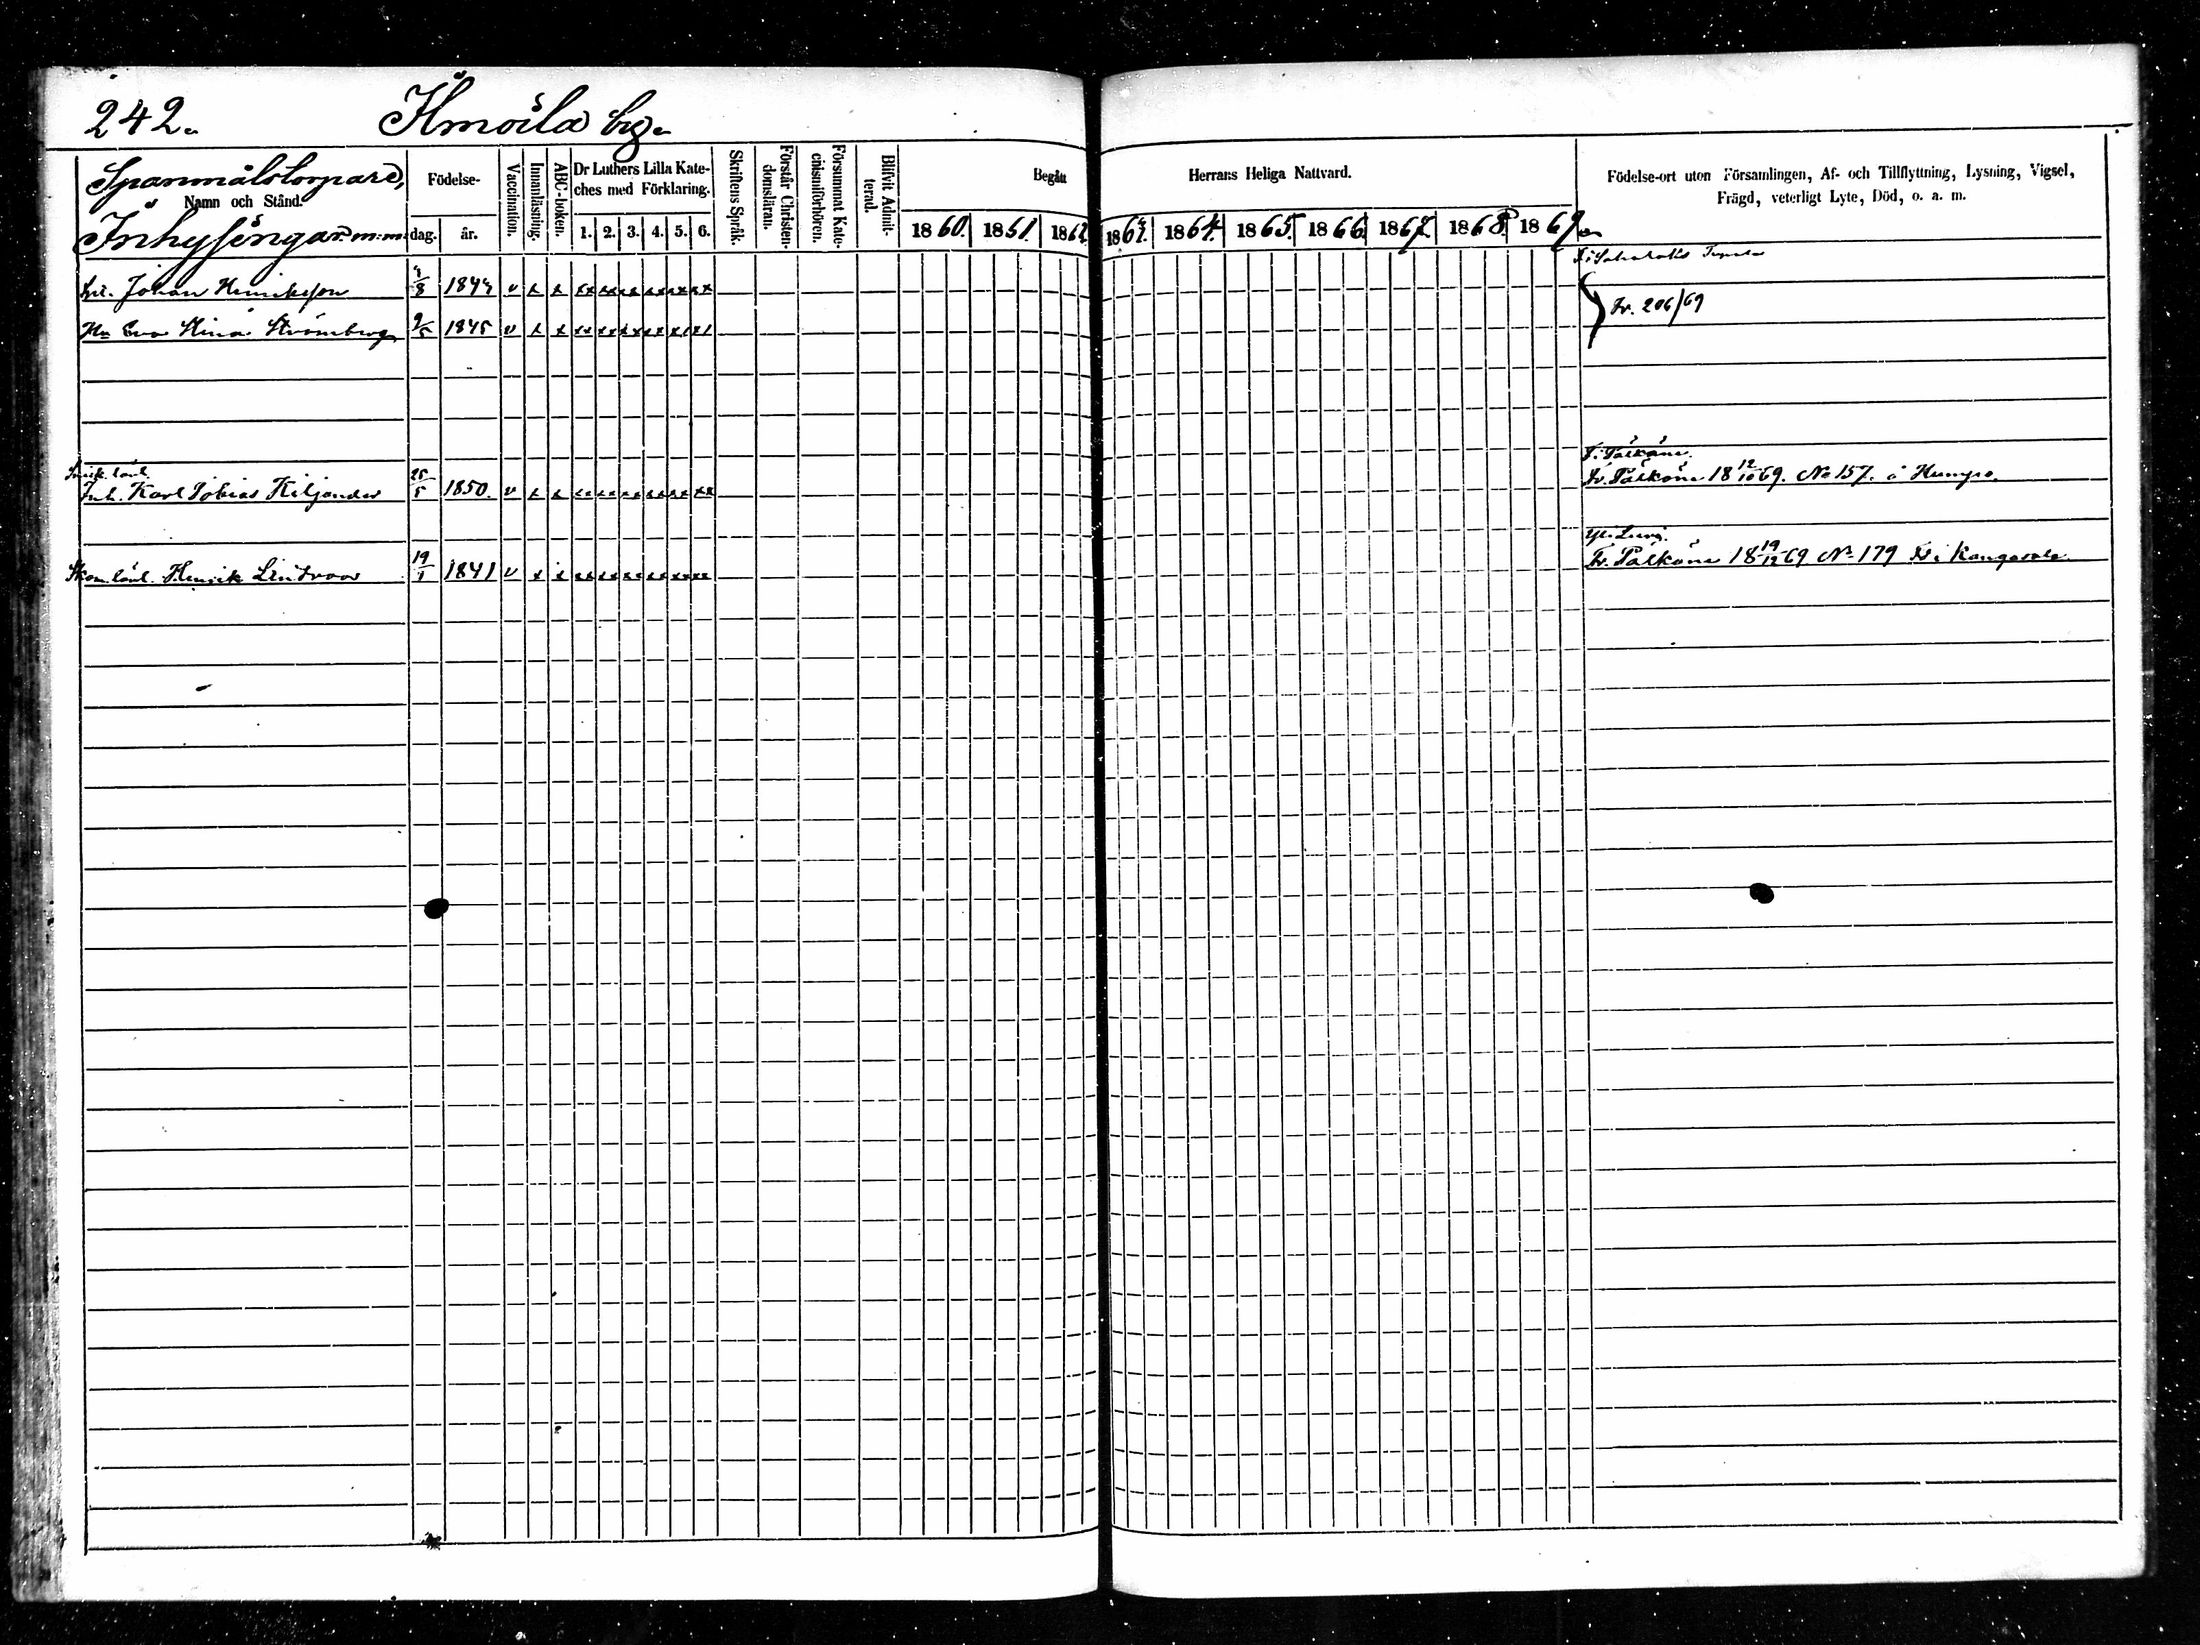 242.
Ilmoila by.
Spannmålstorpare,
Namn och Stånd.
Inhysingar m.m.
Födelse-
dag.
år.
Vaccination.
Innanläsning.
ABC-boken.
Dr Luthers Lilla Kate-
ches med Förklaring.
1. 2. 3. 4. 5. 6.
Skriftens Språk.
Förstår Christen-
domsläran.
Försummat Kate-
chismiförhören.
Blifvit Admit-
terad.
Begått Herrans Heliga Nattvard.
1860. 1861. 1862 1863. 1864. 1865. 1866 1867. 1868. 1869
Födelse-ort uton Församlingen, Af- och Tillflyttning, Lysning, Vigsel,
Frägd, veterligt Lyte, Död, o. a. m.
Johan Henriksson 4/8 1844 v x x
Fr. 206/69
Hu Eva Stina Strömberg 9/5 1845 v x x
F. i Pälkäne.
Inh. Karl Tobias Kiljander 25/5 1850. v x x
Fr. Pälkäne 18 12/10 69. No 157.
Henrik 19/1 1841 v x x
Fr. Pälkäne 18 19/12 69 No 179 F. i Kangasala